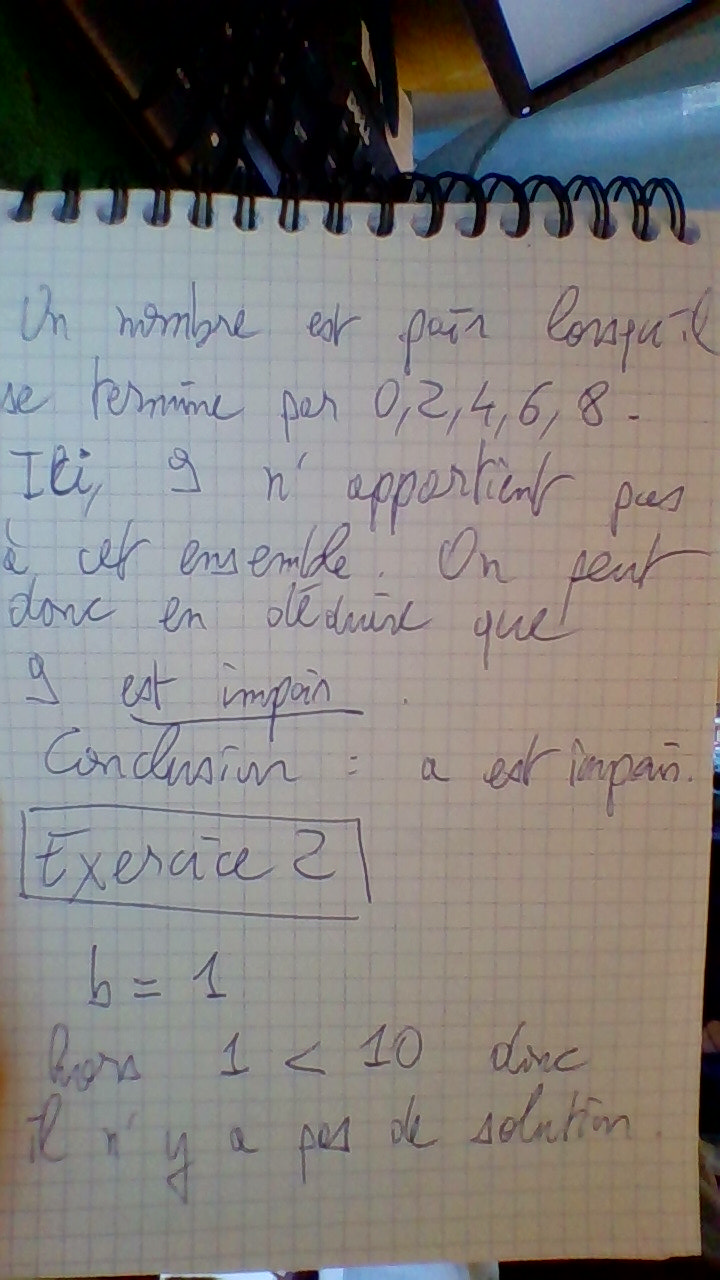 Un nombre est pair lorsqu'il
se termine par 0, 2, 4, 6, 8.
Ici, 9 n'appartient pas
à cet ensemble. On peut
donc en déduire que
9 est impair.
Conclusion : a est impair.
Exercice 2
b = 1
hors 1 < 10 donc
il n'y a pas de solution.